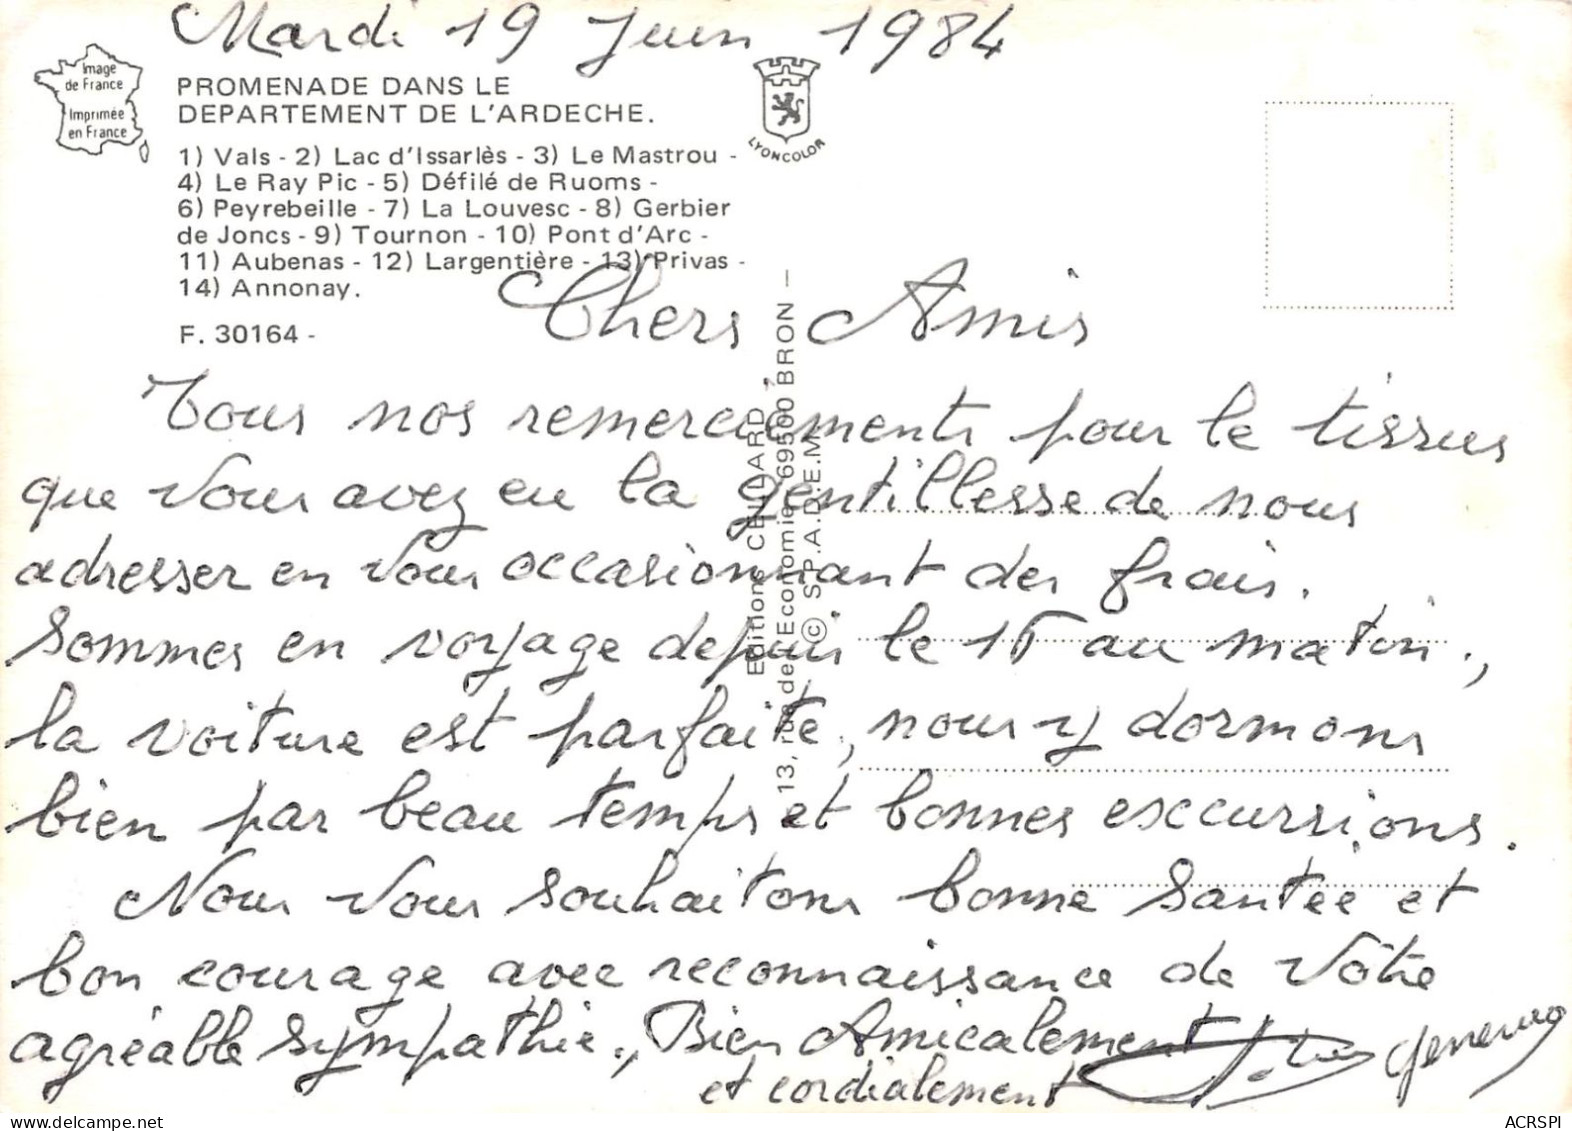 Mardi 19 Juin 1984
Image
de France
Imprimée
en France
PROMENADE DANS LE
DEPARTEMENT DE L'ARDECHE.
LYONCOLOR
1) Vals - 2) Lac d'Issarlès - 3) Le Mastrou -
4) Le Ray Pic - 5) Défilé de Ruoms -
6) Peyrebeille - 7) La Louvesc - 8) Gerbier
de Joncs - 9) Tournon - 10) Pont d'Arc -
11) Aubenas - 12) Largentière - 13) Privas -
14) Annonay.
F. 30164 -
Editions CELLARD
13, rue de l'Economie, 69500 BRON -
© S.P.A.D.E.M.
Chers Amis
Tous nos remerciements pour le tissus
que vous avez eu la gentillesse de nous
adresser en vous occasionnant des frais.
Sommes en voyage depuis le 15 au matin.,
la voiture est parfaite, nous y dormons
bien par beau temps et bonnes excursions.
Nous vous souhaitons bonne santée et
bon courage avec reconnaissance de vôtre
agréable sympathie., Bien Amicalement
et cordialement
ACRSPI